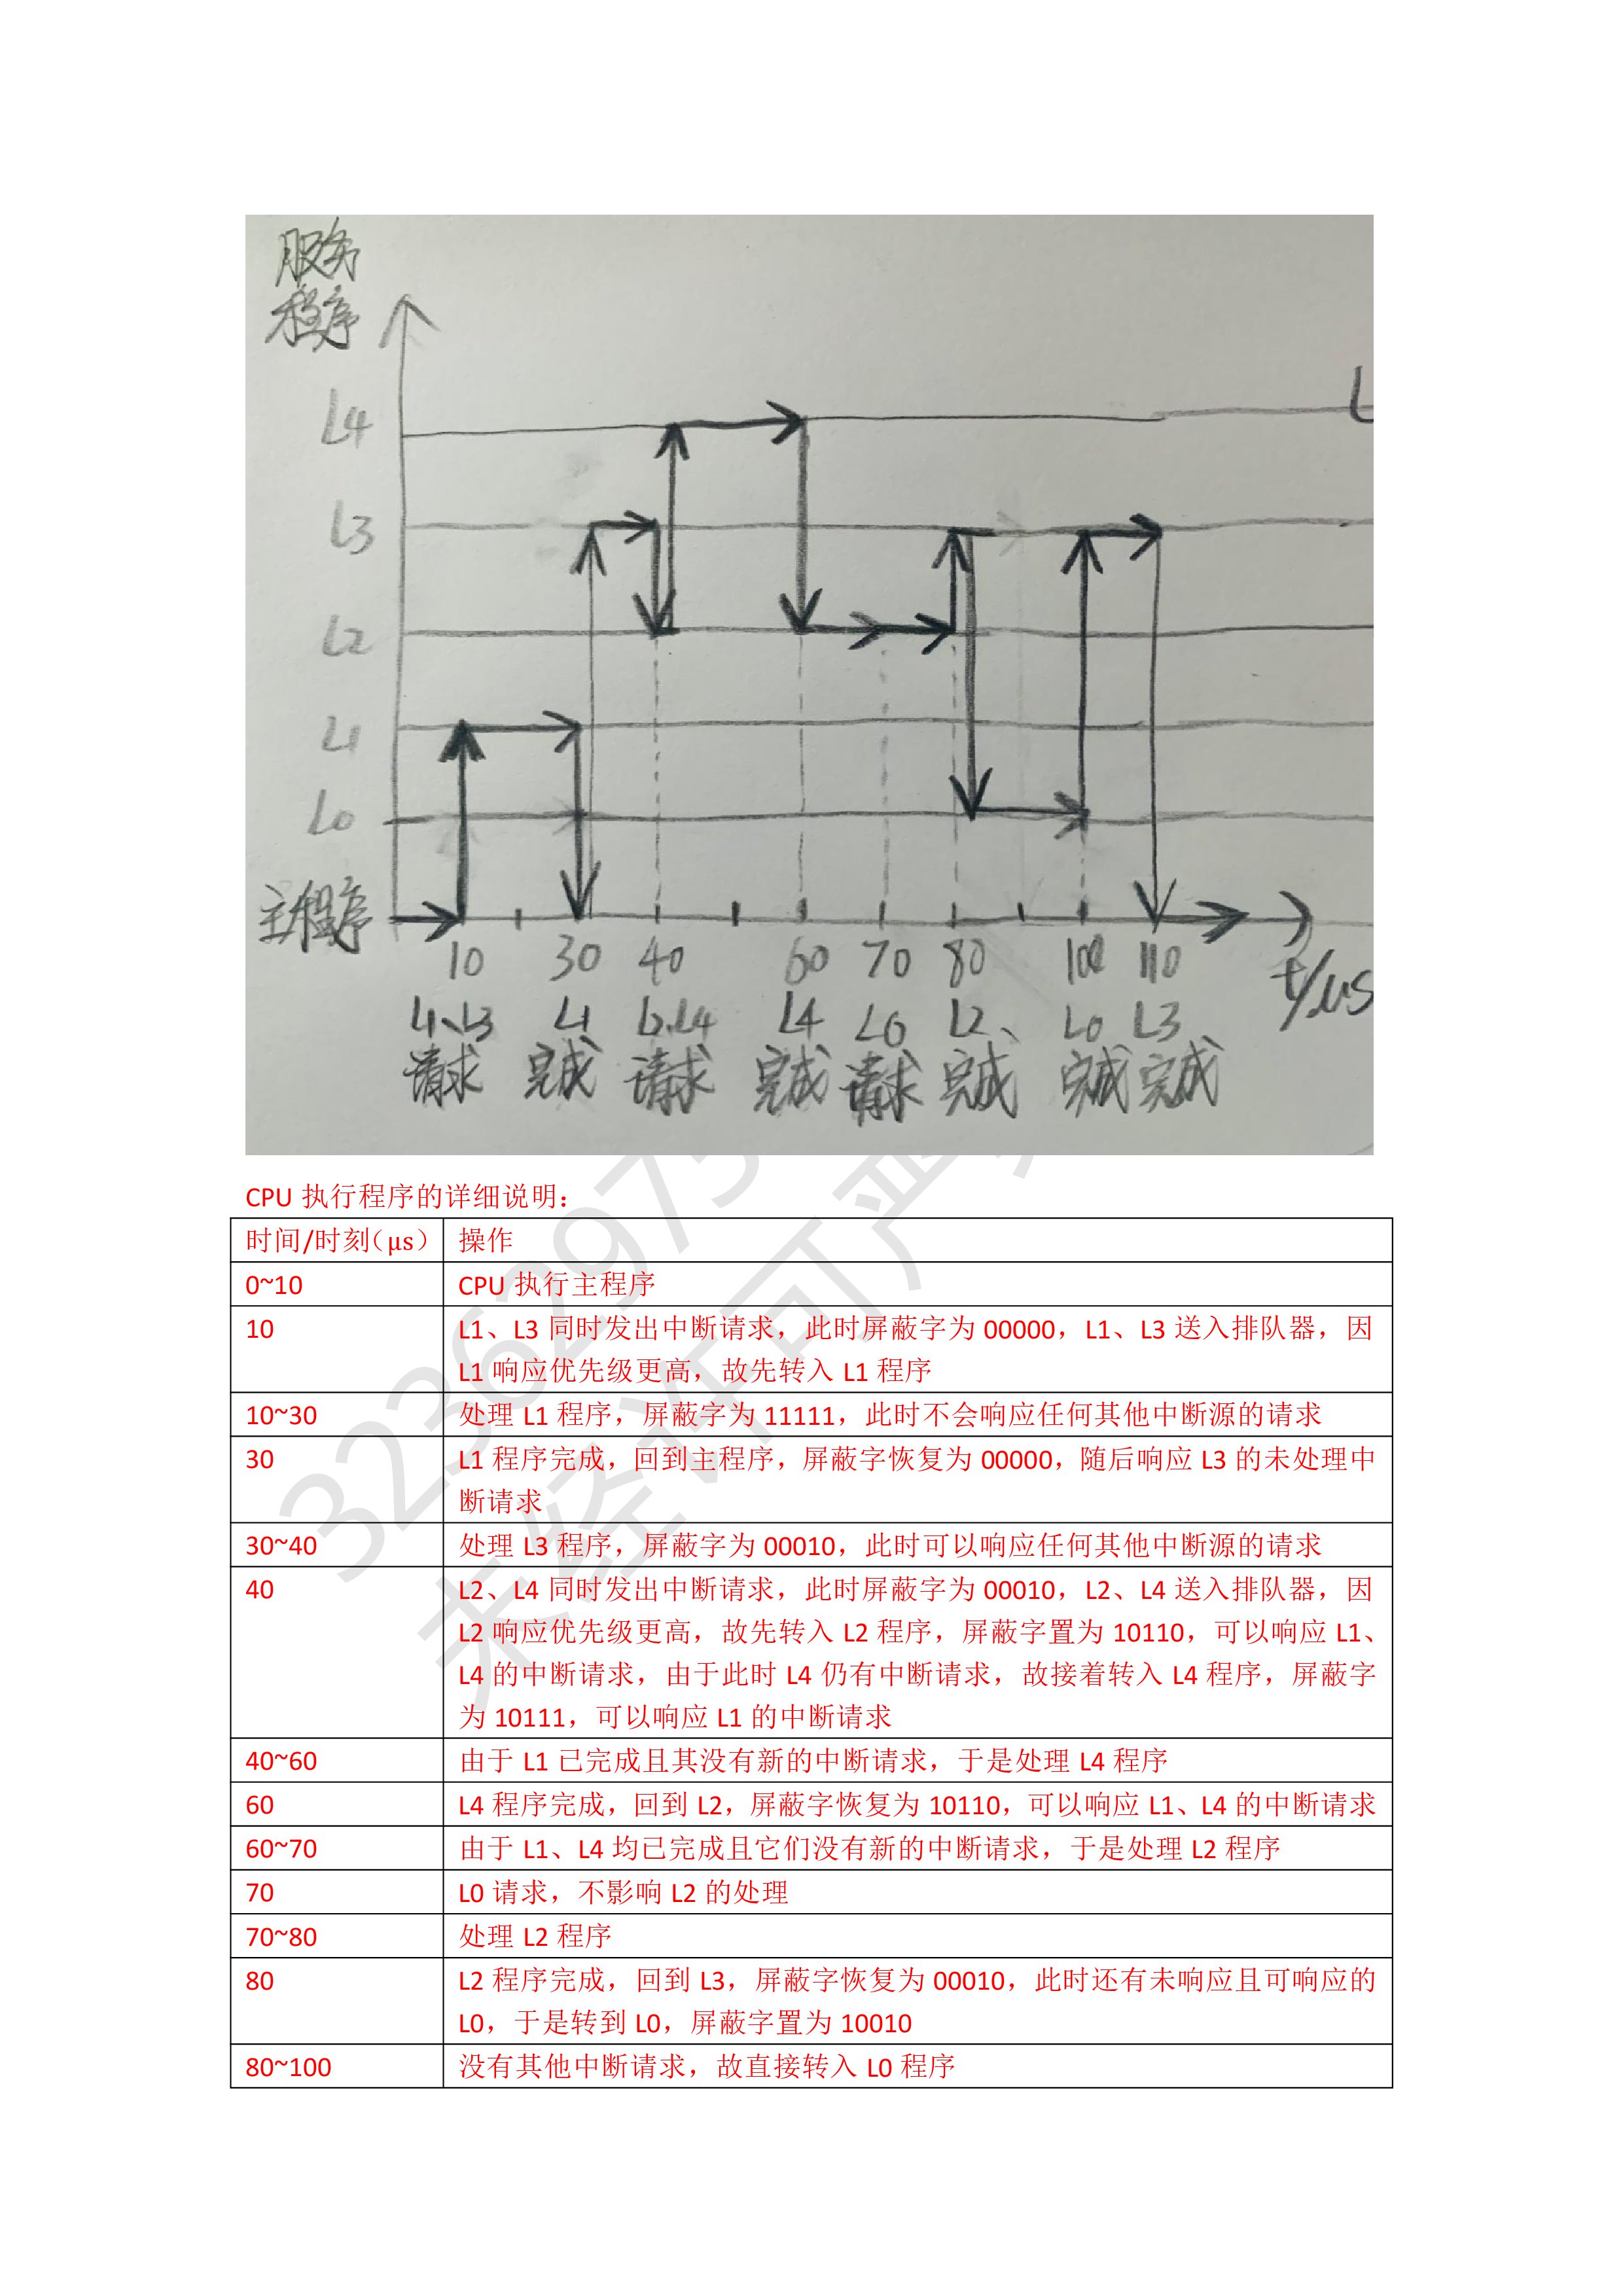 服务
程序
L4
L
L3
L2
L1
L0
主程序
10 30 40 60 70 80 100 110
t/μs
L1、L3 L1 L2、L4 L4 L0 L2、 L0 L3
请求 完成 请求 完成 请求 完成 完成 完成
CPU 执行程序的详细说明：
时间/时刻（μs） 操作
0~10 CPU 执行主程序
10 L1、L3 同时发出中断请求，此时屏蔽字为 00000，L1、L3 送入排队器，因
L1 响应优先级更高，故先转入 L1 程序
10~30 处理 L1 程序，屏蔽字为 11111，此时不会响应任何其他中断源的请求
30 L1 程序完成，回到主程序，屏蔽字恢复为 00000，随后响应 L3 的未处理中
断请求
30~40 处理 L3 程序，屏蔽字为 00010，此时可以响应任何其他中断源的请求
40 L2、L4 同时发出中断请求，此时屏蔽字为 00010，L2、L4 送入排队器，因
L2 响应优先级更高，故先转入 L2 程序，屏蔽字置为 10110，可以响应 L1、
L4 的中断请求，由于此时 L4 仍有中断请求，故接着转入 L4 程序，屏蔽字
为 10111，可以响应 L1 的中断请求
40~60 由于 L1 已完成且其没有新的中断请求，于是处理 L4 程序
60 L4 程序完成，回到 L2，屏蔽字恢复为 10110，可以响应 L1、L4 的中断请求
60~70 由于 L1、L4 均已完成且它们没有新的中断请求，于是处理 L2 程序
70 L0 请求，不影响 L2 的处理
70~80 处理 L2 程序
80 L2 程序完成，回到 L3，屏蔽字恢复为 00010，此时还有未响应且可响应的
L0，于是转到 L0，屏蔽字置为 10010
80~100 没有其他中断请求，故直接转入 L0 程序
3236297
未经许可严